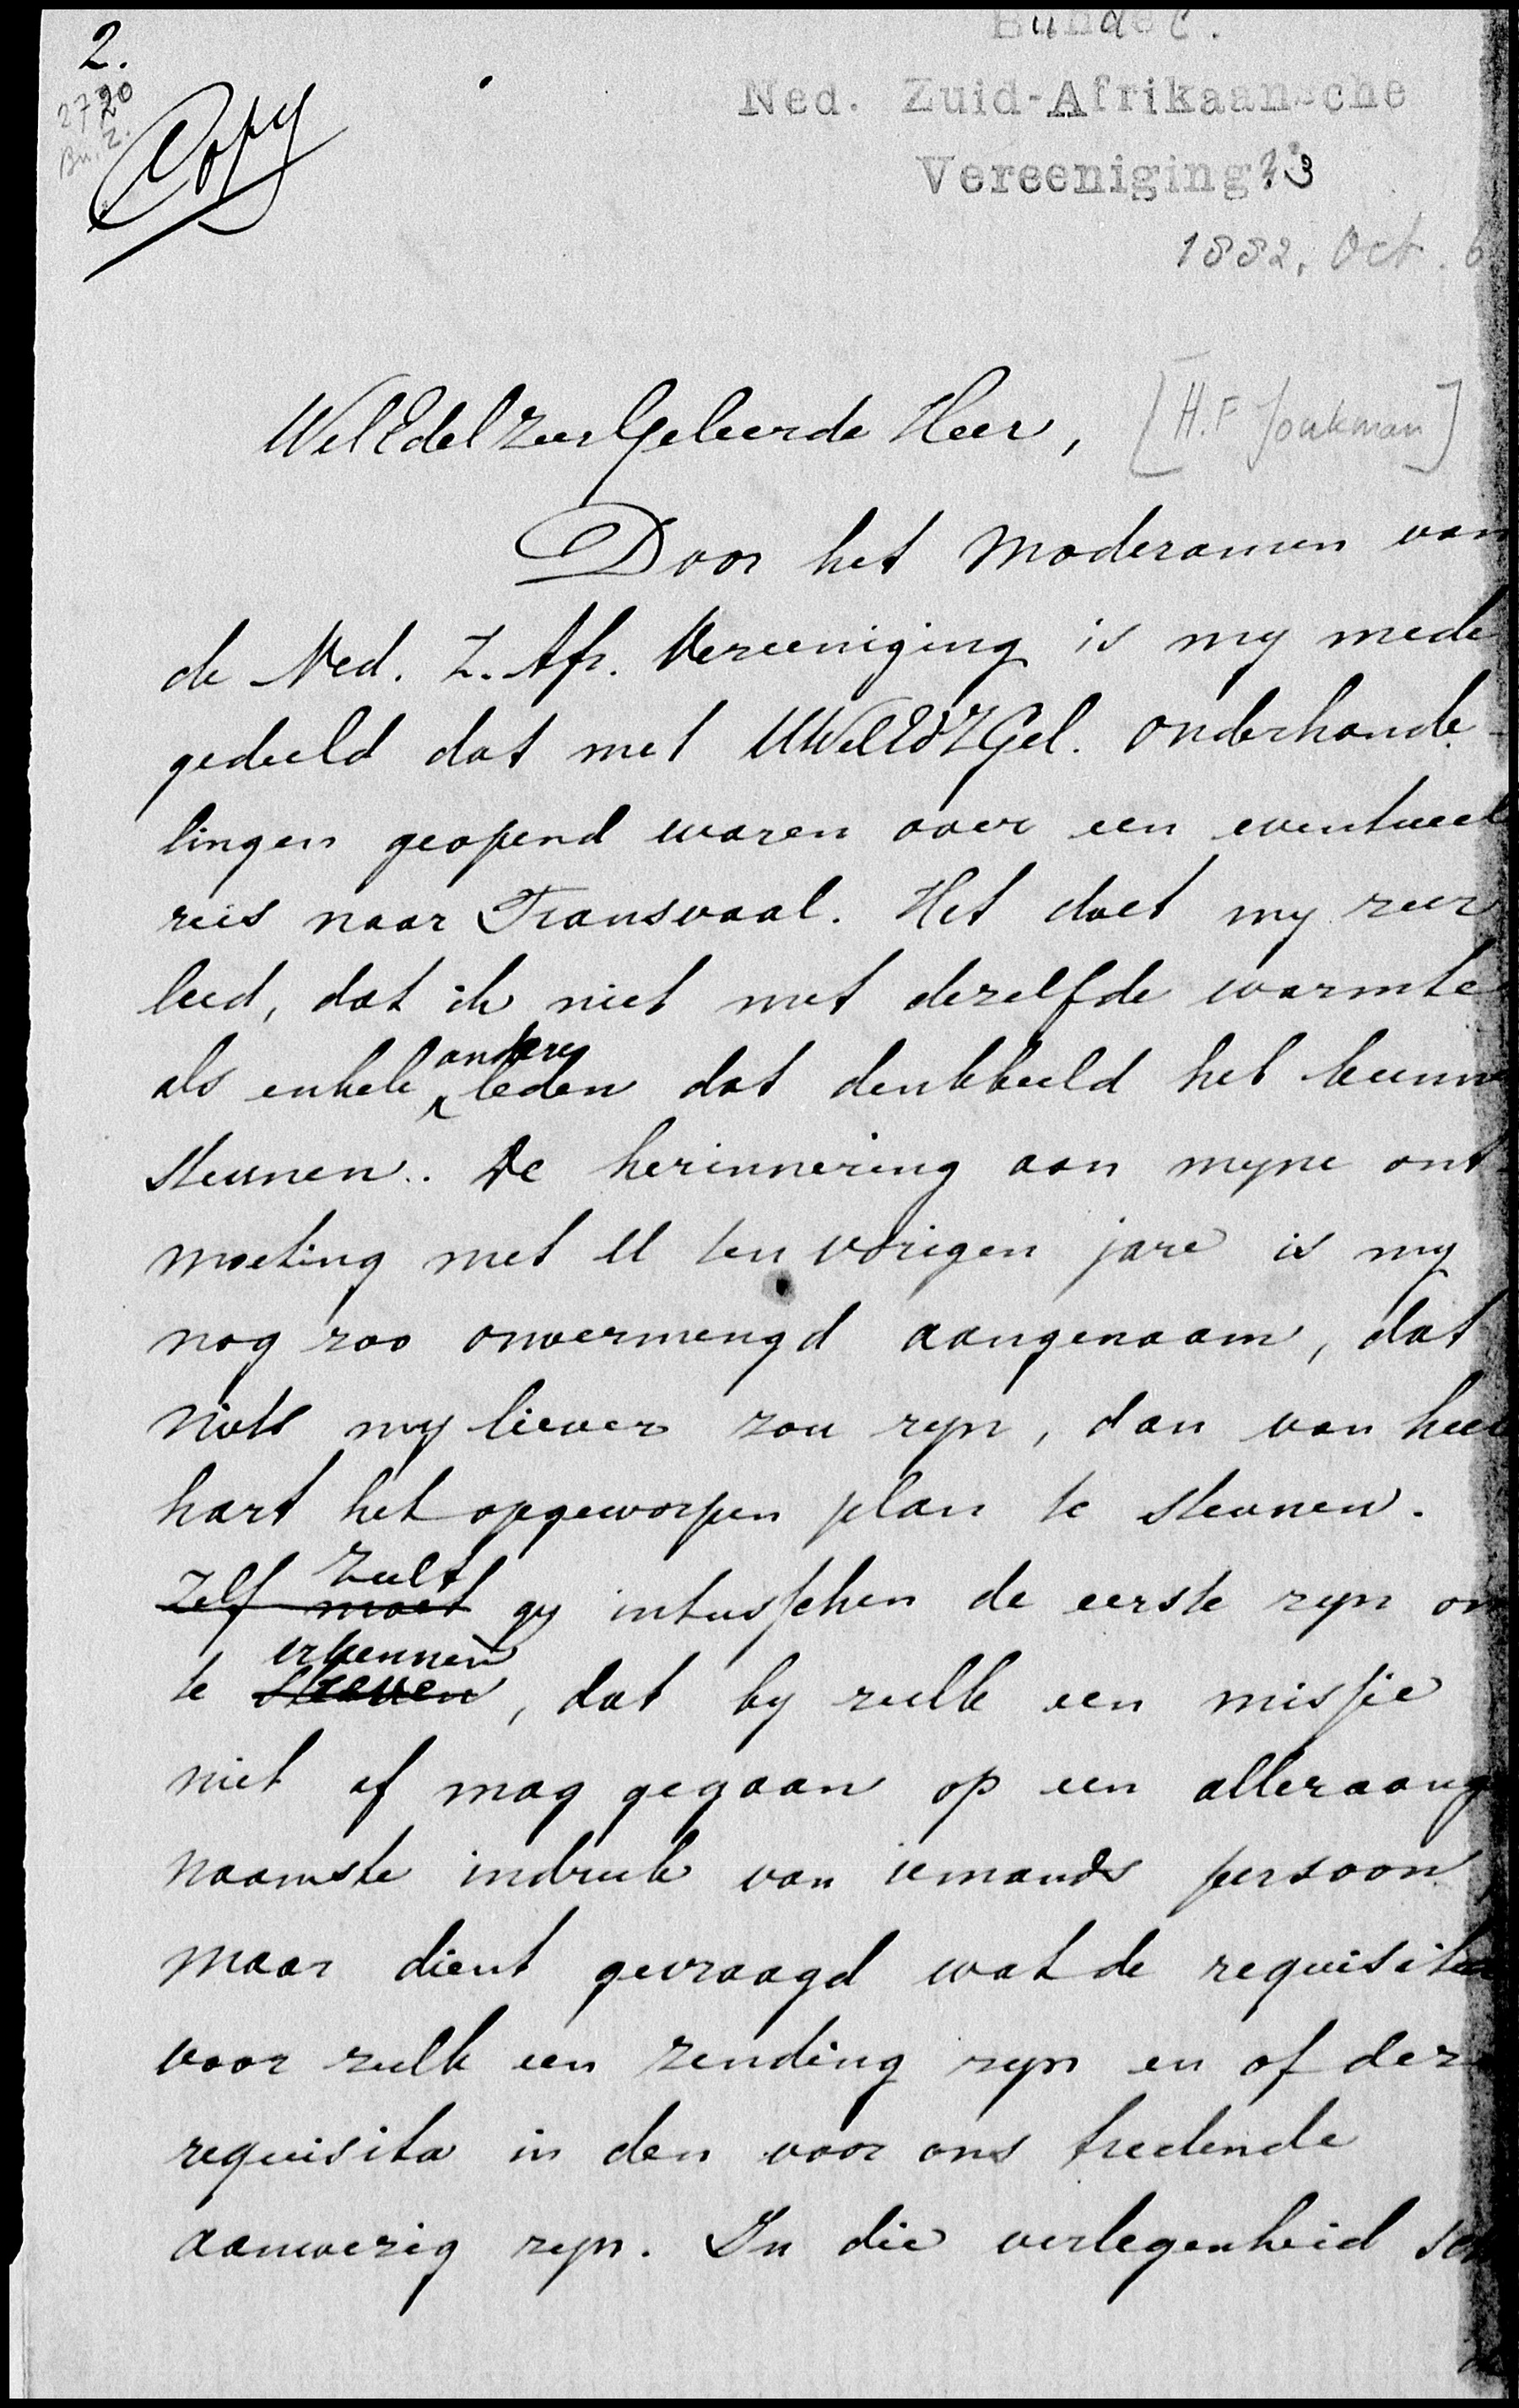 2.
2720
Bu. 2.
Copy
Bundel.
Ned. Zuid-Afrikaansche
Vereeniging
1882. Oct. 6
WelEdelZeerGeleerde Heer, [H.F. Jonkman]
Door het Moderamen van
de Ned. Z. Afr. Vereeniging is my mede
gedeeld dat met UWelEdZGel. onderhande-
lingen geopend waren over een eventueel
reis naar Transvaal. Het doet my zeer
leed, dat ik niet met dezelfde warmte
als enkele andere leden dat denkbeeld heb kunne
steunen. De herinnering aan myne ont-
moeting met U ten vorigen jare is my
nog zoo onvermengd aangenaam, dat
niets my liever zou zyn, dan van heel
hart het opgeworpen plan te steunen.
Zelf moet zult gy intusschen de eerste zyn om
te erkennen, dat by zulk een missie
niet af mag gegaan op een alleraange
naamste indruk van iemands persoon,
maar dient gevraagd wat de requisita
voor zulk een zending zyn en of deze
requisita in den voor ons tredende
aanwezig zyn. In die verlegenheid